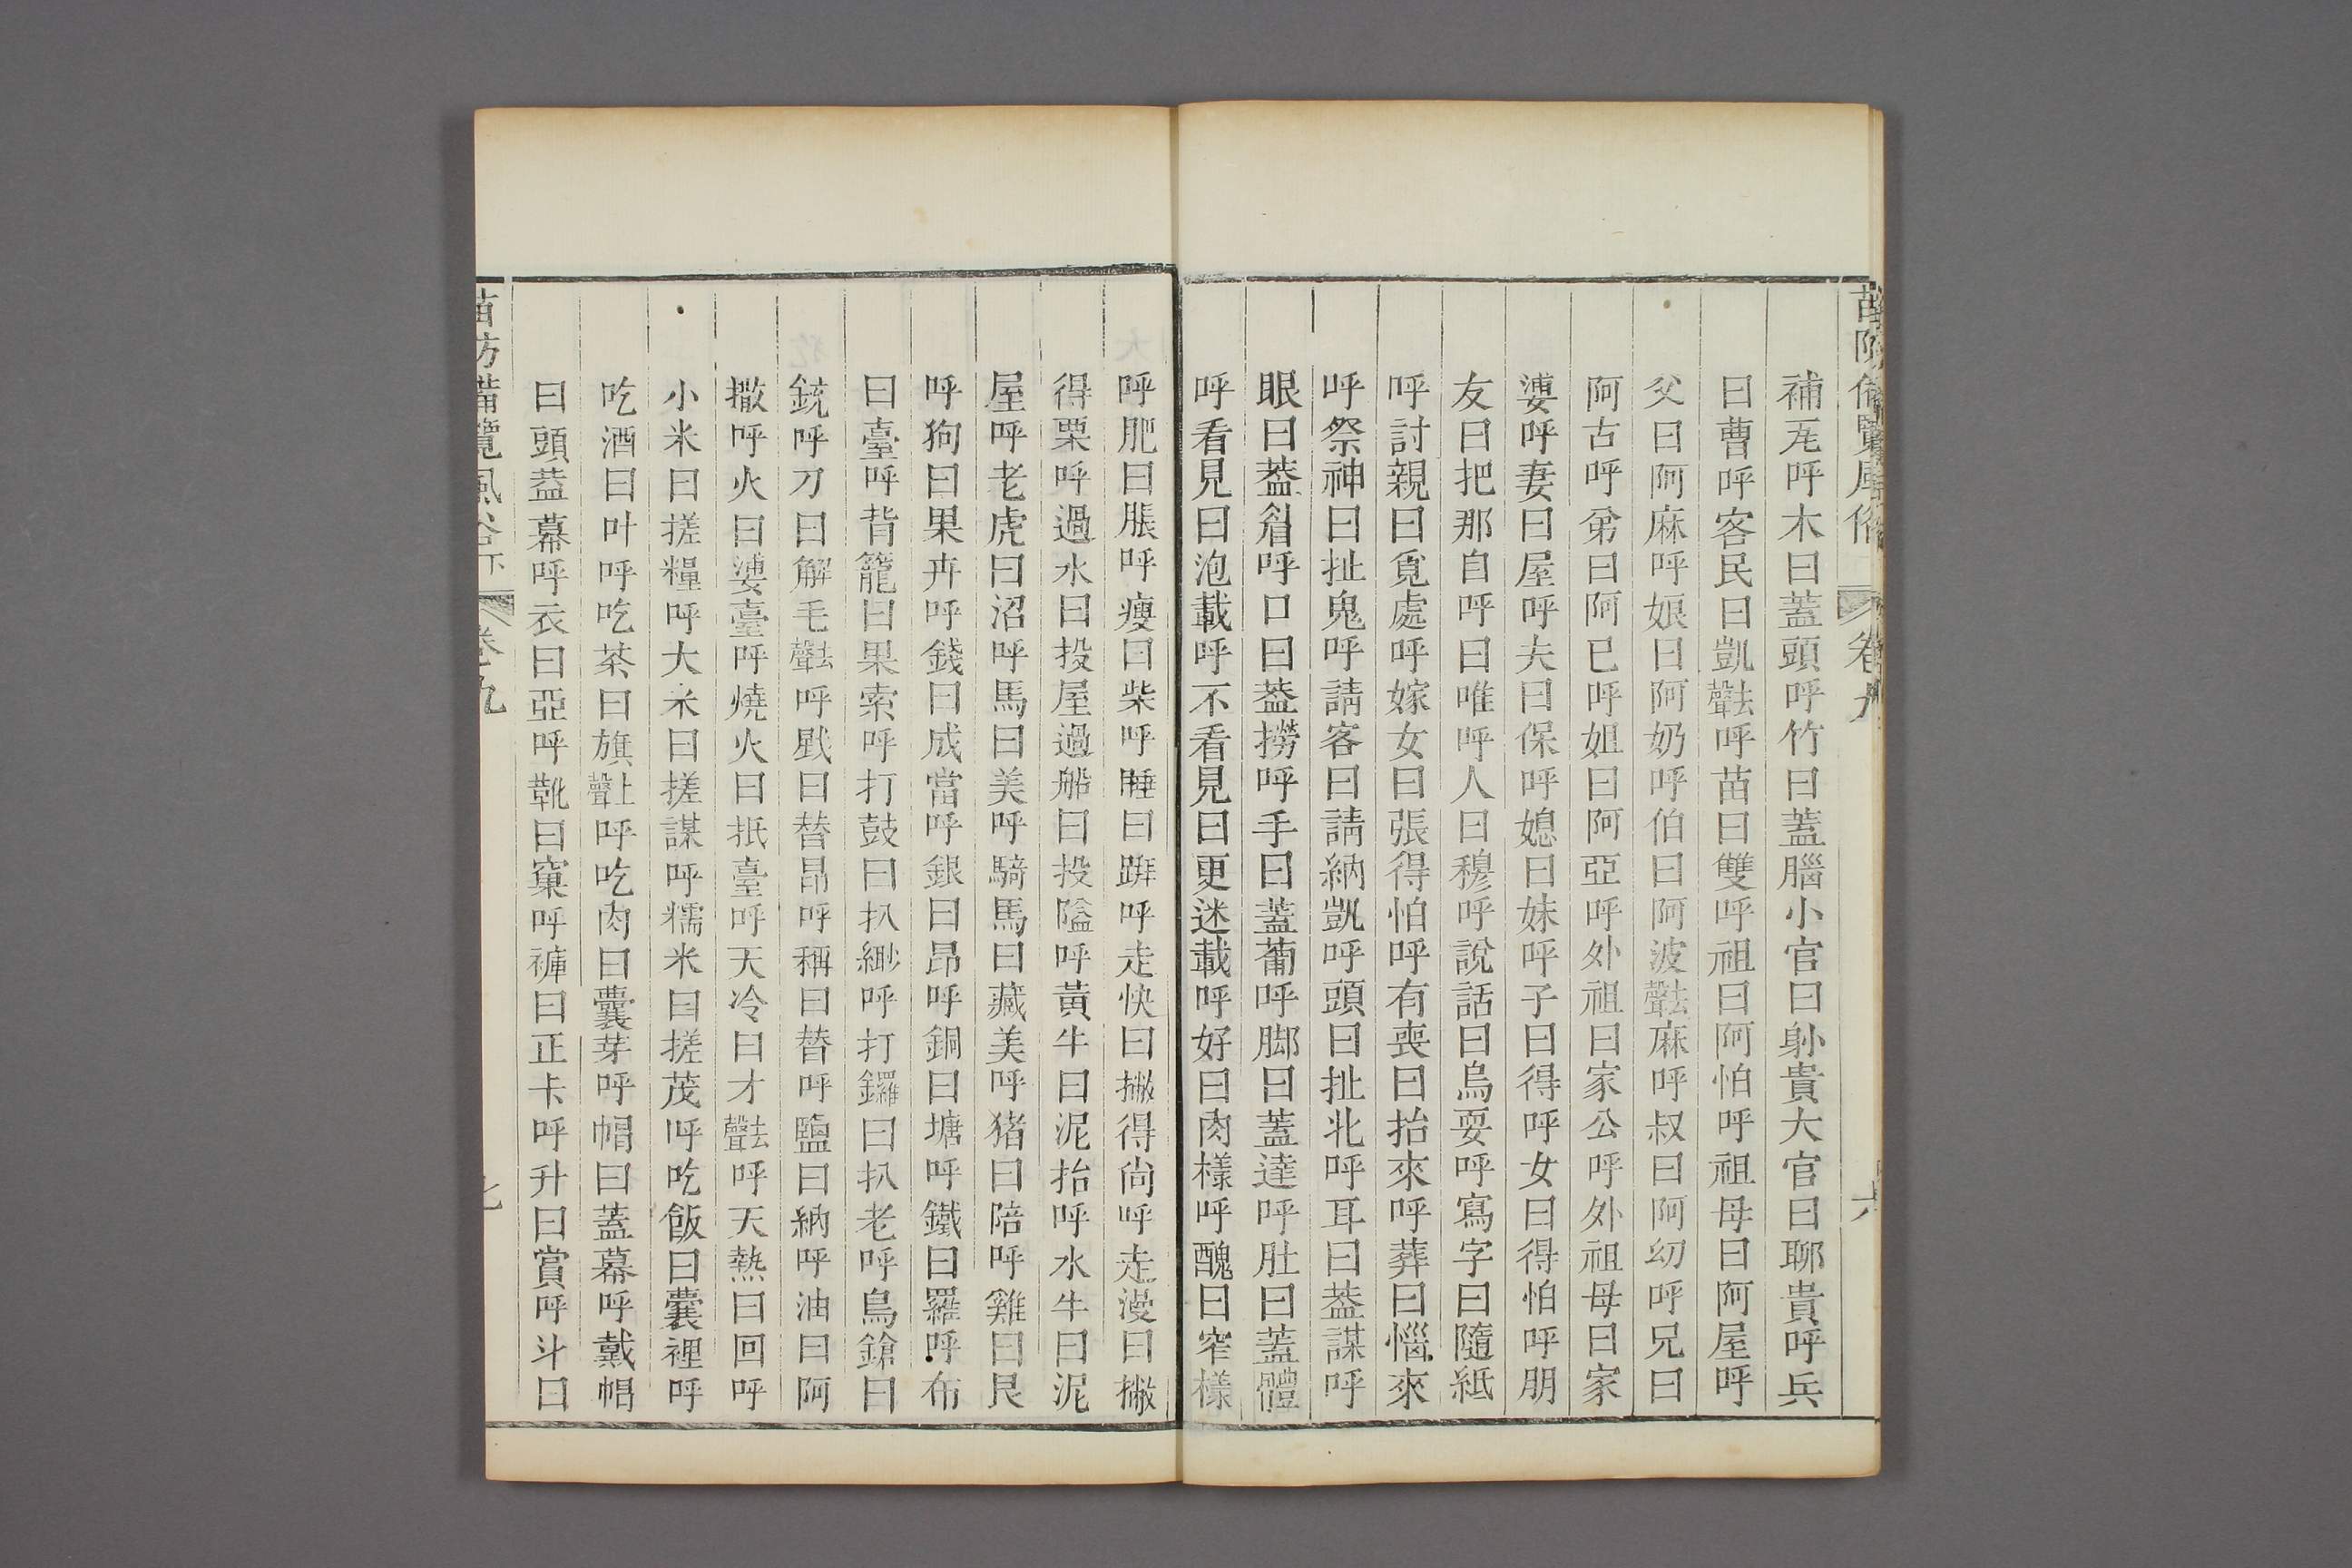 苗防備覽風俗 卷九 六
補尨呼木曰蓋頭呼竹曰蓋腦小官曰躮貴大官曰聊貴呼兵
曰曹呼客民曰凱去聲呼苗曰雙呼祖曰阿怕呼祖母曰阿屋呼
父曰阿麻呼娘曰阿奶呼伯曰阿波去聲麻呼叔曰阿㓜呼兄曰
阿古呼弟曰阿已呼姐曰阿亞呼外祖曰家公呼外祖母曰家
婆呼妻曰屋呼夫曰保呼媳曰妹呼子曰得呼女曰得怕呼朋
友曰把那自呼曰唯呼人曰穆呼說話曰烏耍呼寫字曰隨紙
呼討親曰覓處呼嫁女曰張得怕呼有喪曰抬來呼葬曰惱來
呼祭神曰扯鬼呼請客曰請納凱呼頭曰扯北呼耳曰葢謀呼
眼曰葢眉呼口曰葢撈呼手曰蓋葡呼脚曰蓋達呼肚曰蓋體
呼看見曰泡載呼不看見曰更迷載呼好曰肉樣呼醜曰窄樣
呼肥曰脹呼瘦曰柴呼睡曰跰呼走快曰撇得尙呼走漫曰撇
得栗呼過水曰投屋過船曰投隘呼黃牛曰泥抬呼水牛曰泥
屋呼老虎曰沼呼馬曰美呼騎馬曰藏美呼猪曰陪呼雞曰艮
呼狗曰果卉呼錢曰成當呼銀曰昂呼銅曰塘呼鐵曰羅呼布
曰臺呼背籠曰果索呼打鼓曰扒緲呼打鑼曰扒老呼鳥鎗曰
銃呼刀曰解毛去聲呼戥曰替昂呼稱曰替呼鹽曰納呼油曰阿
撒呼火曰婆臺呼燒火曰抵臺呼天冷曰才去聲呼天熱曰回呼
小米曰搓糧呼大米曰搓謀呼糯米曰搓茂呼吃飯曰囊裡呼
吃酒曰叶呼吃茶曰旗上聲呼吃肉曰囊芽呼帽曰蓋幕呼戴帽
曰頭葢幕呼衣曰亞呼靴曰窠呼褲曰正卡呼升曰賞呼斗曰
苗防備覽風俗下 卷之九 七